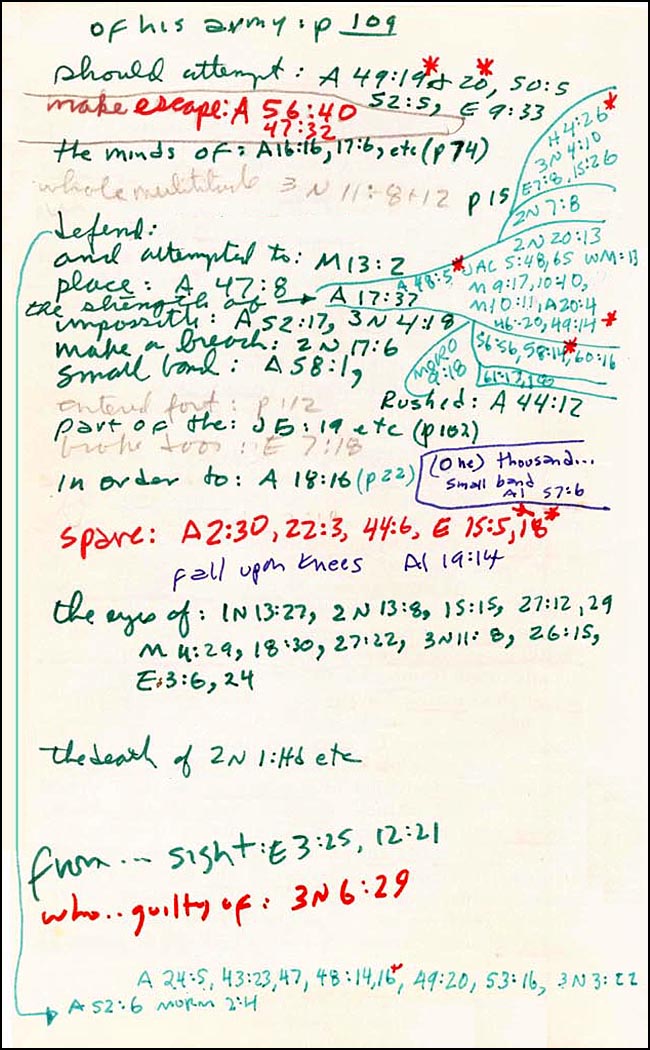 of his army: p 109
should attempt: A 49:19* & 20*, 50:5
52:5, E 9:33
make escape: A 56:40
47:32
the minds of: A16:16, 17:6, etc (p 74)
H 4:26*
3N 4:10
E7:8, 15:26
whole multitude 3 N 11:8+12 p 15
2N 7:8
defend:
2N 20:13
and attempted to: M13:2
A 48:5* JAC 5:48, 65 WM:13
place: A 47:8
M 9:17, 10:40,
the strength of → A 17:37
M10:11, A20:4
46:20, 49:14*
impossib: A 52:17, 3N 4:18
make a breach: 2N 17:6
56:56, 58:14*, 60:16
small band: A 58:1,
MORO 9:18
61:17, 18
entered fort: p 112
Rushed: A 44:12
part of the: J 5:19 etc (p102)
broke door: E 7:18
in order to: A 18:16 (p22)
(One) thousand...
small band
Al 57:6
spare: A2:30, 22:3, 44:6, E 15:5*, 18*
fall upon knees Al 19:14
the eyes of: 1N 13:27, 2N 13:8, 15:15, 27:12, 29
M 4:29, 18:30, 27:22, 3N11:8, 26:15,
E 3:6, 24
the death of 2N 1: etc
from... sight: E 3:25, 12:21
who.. guilty of: 3N 6:29
A 24:5, 43:23, 47, 48:14, 16*, 49:20, 53:16, 3N 3:22
A 52:6 MORM 2:4